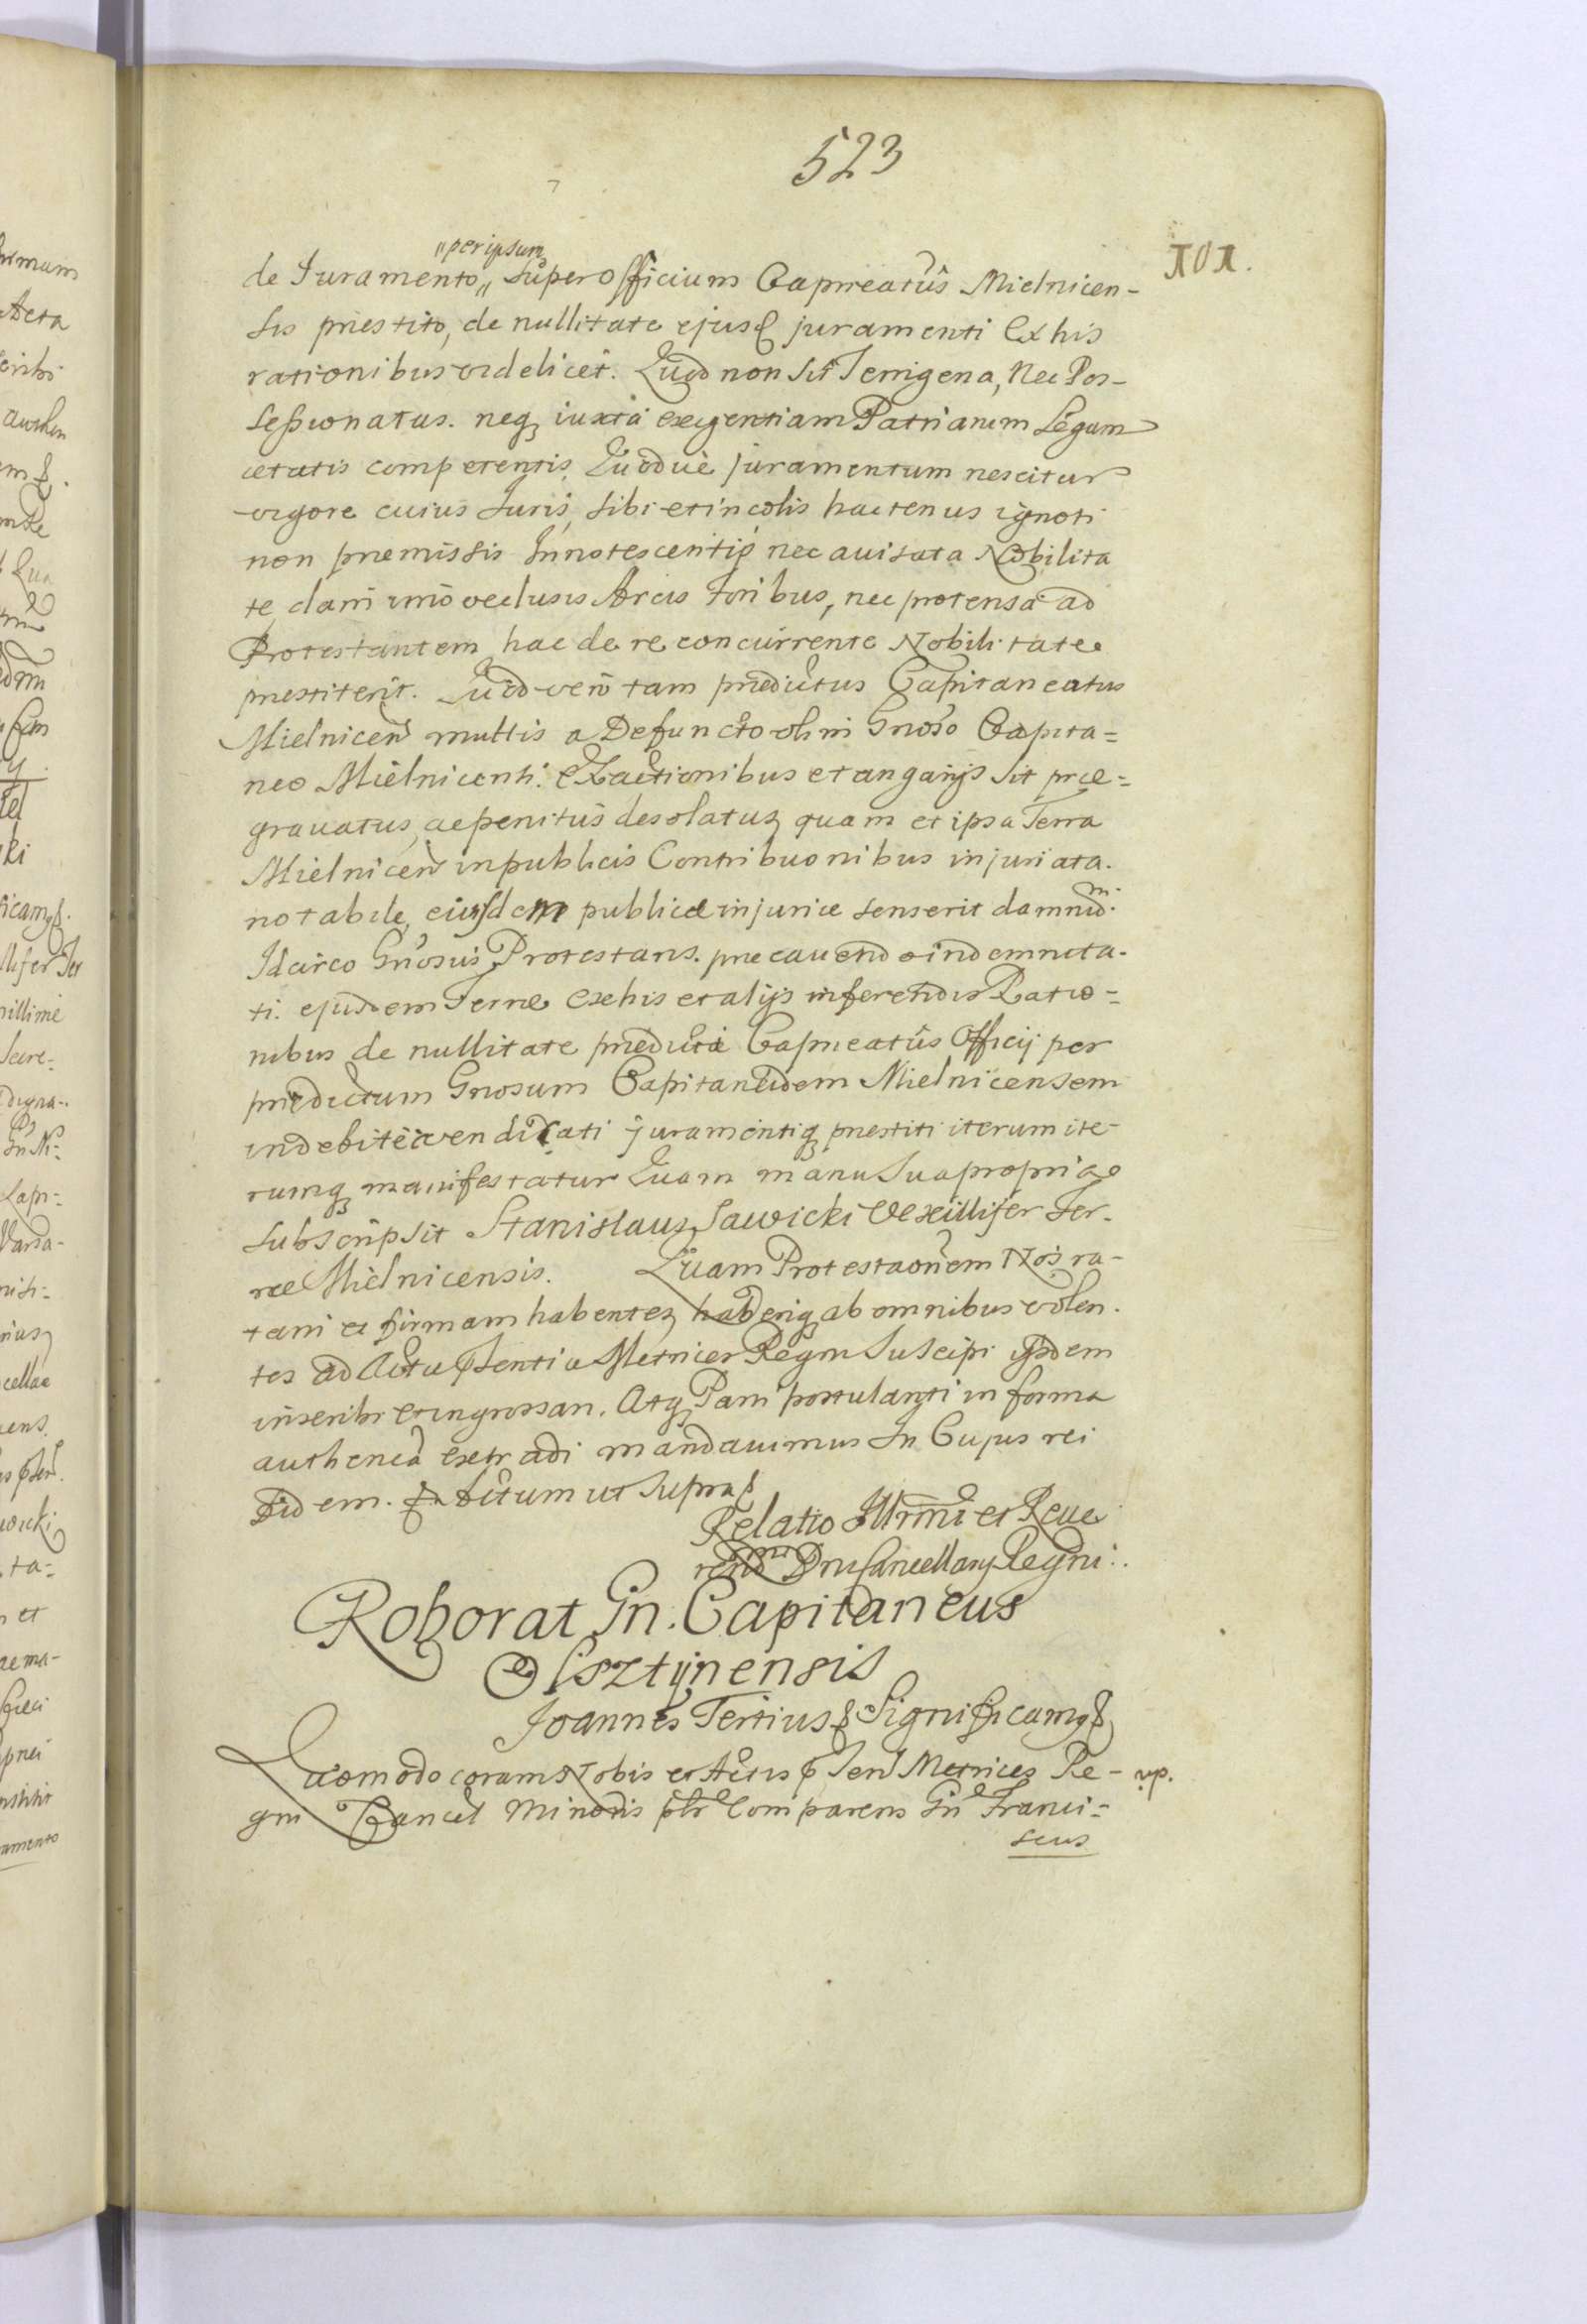 523
пол.
"per ipsum
de Iuramento,, super Officium Capneatus Mielnicen-
sis priestito, de nullitate ejusd juramenti Ex his
rationibus videlicet. Quod non sit Terrigena, Nec Pos-
seßionatus. neq iuxta exigentiam Patriarum Legum
aetatis competentis, Quodve juramentum nescitur
vigore cuius Iuris, sibi et incolis hactenus ignoti
non premissis Innotescentiis nec avisata Nobilita
te clam imo occlusis Arcis foribus, nec protensa ad
Protestantem hac de re concurrente Nobilitate
prestiterit. Quod vero tam predictus Capitaneatus
Mielnicen multis a Defuncto olim Gnoso Capita=
neo Mielnicensi. Exactionibus et angarijs sit prae=
gravatus, ac penitus desolatus quam et ipsa Terra
Mielnicen in publicis Contribuonibus injuriata.
notabile, eiusdem publicae injuriae senserit damnum.
Idcirco Gnosus Protestans. precavendo indemnita-
ti. ejusdem Terrae ex his et alijs inferendis Ratio=
nibus de nullitate predicti Capneatus Officij per
predictum Gnosum Capitaneidem Mielnicensem
indebite vendicati juramentiq prestiti iterum ite-
rumq manifestatur Quam manu sua propria
subscripsit Stanislaus Sawicki Vexillifer Ter-
rae Mielnicensis. Quam Protestaonem Nos ra-
tam et firmam habentes haberiq ab omnibus volen.
tes ad Acta psentia Metrices Regni Suscipi ijsdem
inscribi et ingrossari. Atq Parti postulanti in forma
authenca extradi mandavimus In Cujus rei
fidem. Datum ut supra
Relatio Illrmi et Reve
rendmi Dni Cancellary Regni:.
Roborat Gn. Capitaneus
Olsztynensis
Joannes Tertius Significamq
Quomodo coram Nobis et Actis psen Metrices Re-
gni Cancel Minoris pltr Comparens Gn Franci=
scus